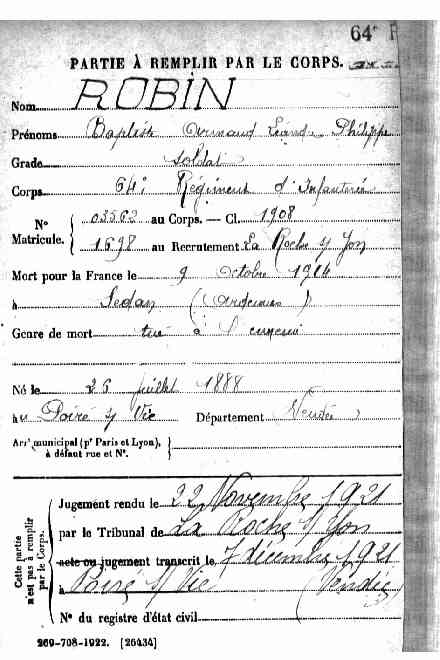 64e
PARTIE À REMPLIR PAR LE CORPS.
Nom ROBIN
Prénoms Baptiste Armand Léandre Philippe
Grade soldat
Corps 64e Régiment d'Infanterie
N° Matricule. { 03562 au Corps. — Cl. 1908
1698 au Recrutement La Roche s/ Yon
Mort pour la France le 9 Octobre 1914
à Sedan (Ardennes)
Genre de mort tué à l'ennemi
Né le 26 juillet 1888
à Poiré s/ Vie Département Vendée
Arrt municipal (pr Paris et Lyon),
à défaut rue et N°.
Cette partie
n'est pas à remplir
par le Corps.
Jugement rendu le 22 Novembre 1921
par le Tribunal de La Roche s/ Yon
acte ou jugement transcrit le 7 décembre 1921
à Poiré s/ Vie (Vendée)
N° du registre d'état civil
269-708-1922. [26434]